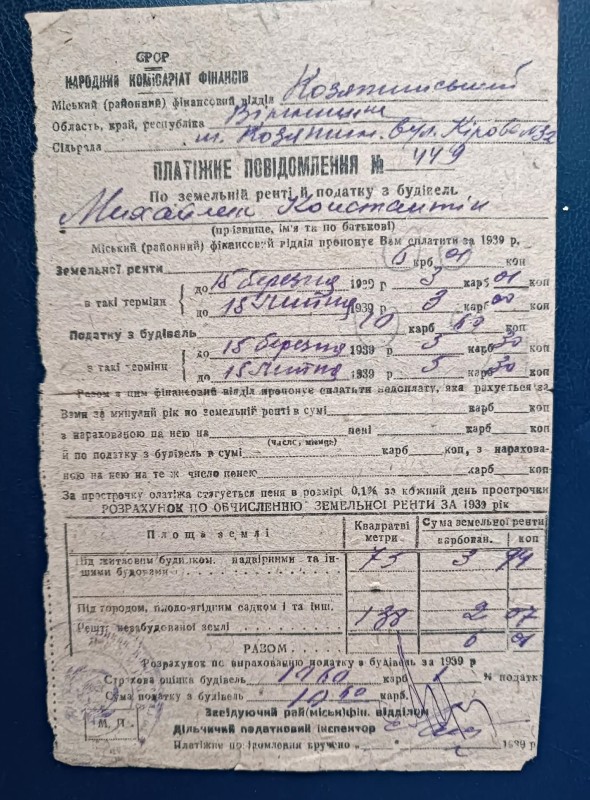 СРСР
НАРОДНИЙ КОМІСАРІАТ ФІНАНСІВ
Міський (районний) фінансовий відділ Козятинський
Область, край, республіка Вінницька
Сільрада м. Козятин. вул. Кірова №32
ПЛАТІЖНЕ ПОВІДОМЛЕННЯ № 449
По земельній ренті й податку з будівель
Михайлек Константін
(прізвище, ім'я та по батькові)
Міський (районний) фінансовий відділ пропонує Вам сплатити за 1939 р.
Земельної ренти 6 карб 01 коп
в такі терміни { до 15 березня 1939 р 3 карб 01 коп
до 15 Липня 1939 3 карб 00 коп
Податку з будівель 10 карб 60 коп
в такі терміни { до 15 березня 1939 р 5 карб 30 коп
до 15 Липня 1939 5 карб 30 коп
Разом з цим фінансовий відділ пропонує сплатити недоплату, яка рахується за
Вами за минулий рік по земельній ренті в сумі карб коп
з нарахованою на нею на пені карб коп
(число, місяць)
й по податку з будівель в сумі карб коп, з нарахова-
ною на нею на те ж число пенею карб коп
За прострочку платіжа стягується пеня в розмірі 0,1% за кожний день прострочки
РОЗРАХУНОК ПО ОБЧИСЛЕННЮ ЗЕМЕЛЬНОЇ РЕНТИ ЗА 1939 рік
Площа землі Квадратні метри Сума земельної ренти карбован. коп
Під житловим будинком, надвірними та ін-
шими будовами 75 3 94
Під городом, плодо-ягідним садком і та інш.
Решті незабудованої землі 138 2 07
РАЗОМ 6 01
Розрахунок по вирахованню податку з будівель за 1939 р
Страхова оцінка будівель 1060 карб % податку
Сума податку з будівель 10 60 карб.
Завідуючий рай(міськ)фін. відділом
М. П. Дільничий податковий інспектор
Платіжне повідомлення вручено 1939 р